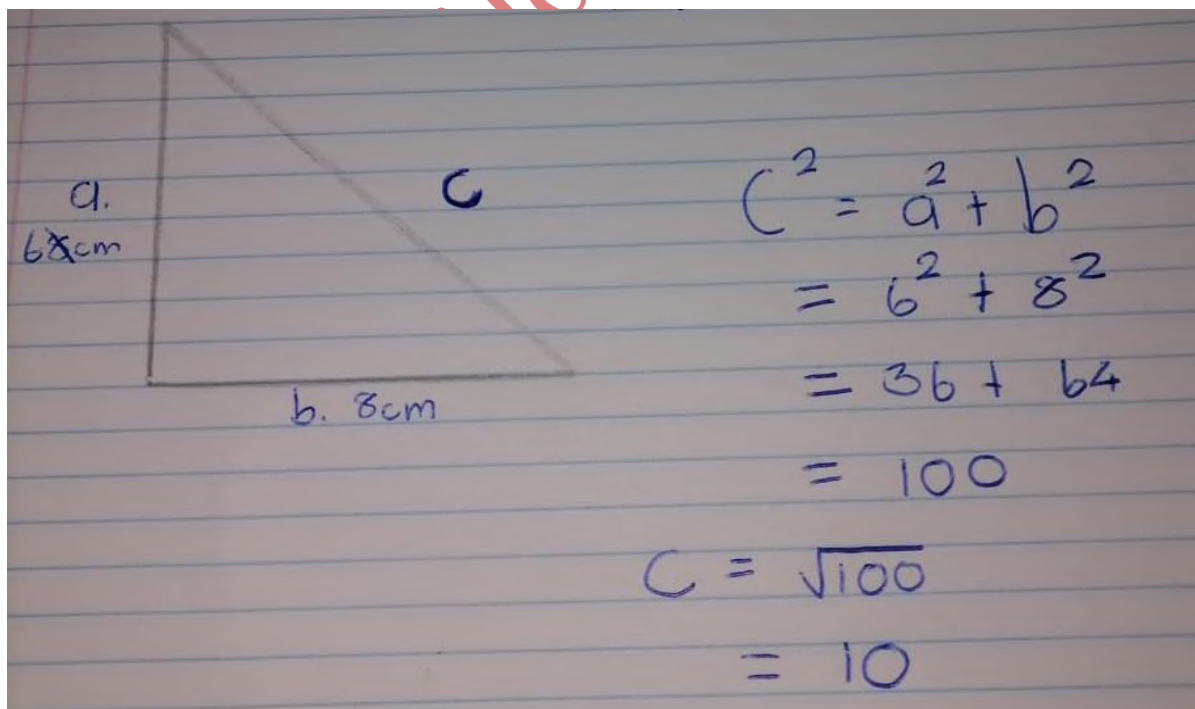 a.
6cm
c
b. 8cm
C² = a² + b²
= 6² + 8²
= 36 + 64
= 100
C = √100
= 10